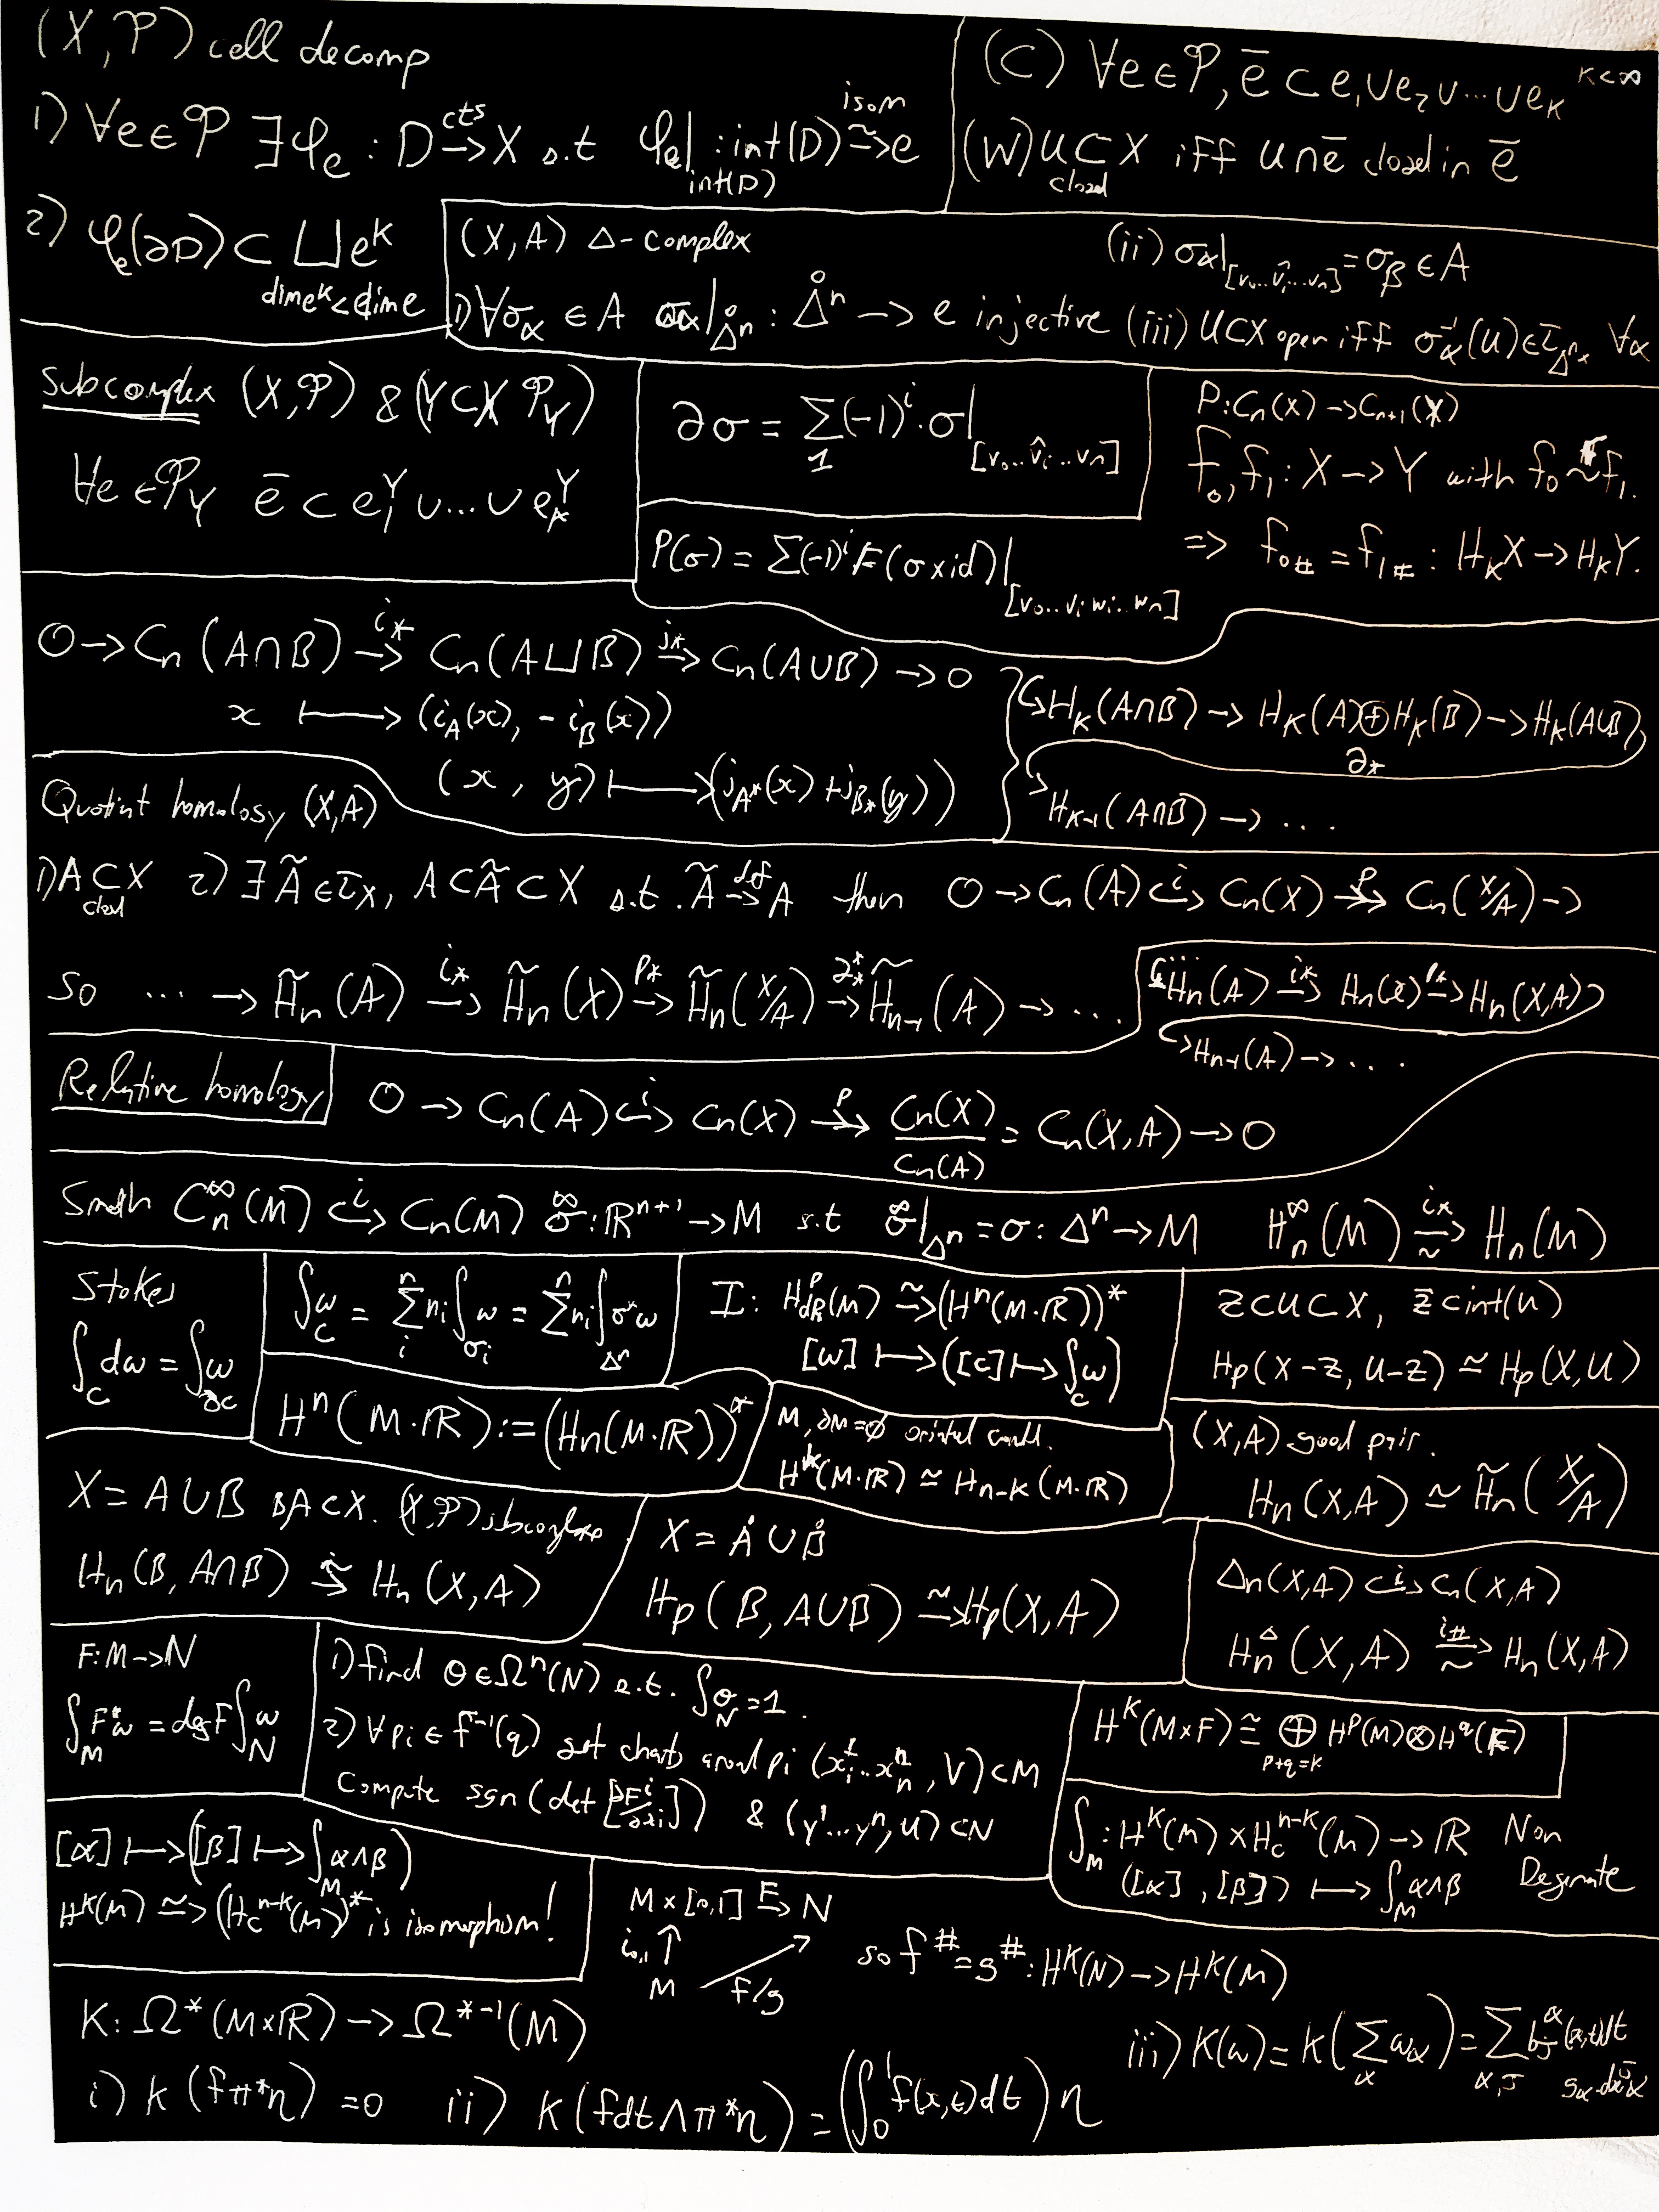 (X, 𝒫) cell decomp
1) ∀e∈𝒫 ∃φₑ : D →^{cts} X s.t φₑ|_{int(D)} : int(D) ⥲^{isom} e
2) φₑ(∂D) ⊂ ⨆ e^k_{dim e^k < dim e}
(C) ∀e∈𝒫, ē ⊂ e₁∪e₂∪...∪e_K K<∞
(W) U ⊂_{closed} X iff U∩ē closed in ē
(X, A) Δ-complex
1) ∀σ_α ∈ A σ_α|_{Δ̊ⁿ} : Δ̊ⁿ → e injective
(ii) σ_α|_{[v₀..v̂ᵢ..vₙ]} = σ_β ∈ A
(iii) U⊂X open iff σ_α⁻¹(U)∈τ_{Δ^{n_α}} ∀α
Subcomplex (X,𝒫) & (Y⊂X 𝒫_Y)
∀e∈𝒫_Y ē ⊂ e₁^Y ∪...∪ e_K^Y
∂σ = Σ_1 (-1)^i · σ|_{[v₀..v̂ᵢ..vₙ]}
P(σ) = Σ(-1)^i F(σ×id)|_{[v₀..vᵢ wᵢ..wₙ]}
P: Cₙ(X) → C_{n+1}(Y)
f₀, f₁ : X → Y with f₀ ~ f₁.
=> f_{0#} = f_{1#} : H_K X → H_K Y.
0 → Cₙ(A∩B) →^{i_*} Cₙ(A⊔B) →^{j_*} Cₙ(A∪B) → 0
x ⟼ (i_A(x), - i_B(x))
(x , y) ⟼ (j_{A*}(x) + j_{B*}(y))
↪ H_K(A∩B) → H_K(A)⊕H_K(B) → H_K(A∪B)
∂_*
↪ H_{K-1}(A∩B) → ...
Quotint homology (X,A)
1) A ⊂_{closed} X 2) ∃Ã∈τ_X, A⊂Ã⊂X s.t. Ã →^{def} A then 0 → Cₙ(A) ↪^{i} Cₙ(X) ↠^{p} Cₙ(X/A) →
so ... → H̃ₙ(A) →^{i_*} H̃ₙ(X) →^{p_*} H̃ₙ(X/A) →^{∂_*} H̃_{n-1}(A) → ...
↪ Hₙ(A) →^{i_*} Hₙ(X) →^{p_*} Hₙ(X,A)
↪ H_{n-1}(A) → ...
Relative homology 0 → Cₙ(A) ↪^{i} Cₙ(X) ↠^{p} Cₙ(X)/Cₙ(A) = Cₙ(X,A) → 0
Smooth Cₙ^∞(M) ↪^{i} Cₙ(M) σ^∞ : ℝ^{n+1} → M s.t σ^∞|_{Δⁿ} = σ : Δⁿ → M Hₙ^∞(M) ⥲^{i_*} Hₙ(M)
Stokes
∫_C dω = ∫_{∂C} ω
∫_C ω = Σ_i^n nᵢ ∫_{σᵢ} ω = Σ^n nᵢ ∫_{Δⁿ} σ*ω
I : H^p_{dR}(M) ⥲ (Hⁿ(M·ℝ))*
[ω] ⟼ ([c] ⟼ ∫_C ω)
Z⊂U⊂X, Z̄⊂int(U)
H_p(X-Z, U-Z) ≃ H_p(X,U)
Hⁿ(M·ℝ) := (Hₙ(M·ℝ))*
M, ∂M=∅ oriented
H^k(M·ℝ) ≃ H_{n-k}(M·ℝ)
(X,A) good pair.
Hₙ(X,A) ≃ H̃ₙ(X/A)
X = A∪B B,A⊂X. (X,𝒫) subcomplex
Hₙ(B, A∩B) ⥲^{i} Hₙ(X,A)
X = Å∪B̊
H_p(B, A∪B) ⥲ H_p(X,A)
Δₙ(X,A) ↪^{i} Cₙ(X,A)
Hₙ^Δ(X,A) ⥲^{i_#} Hₙ(X,A)
F: M → N
∫_M F*ω = deg F ∫_N ω
1) find θ∈Ωⁿ(N) s.t. ∫_N θ = 1.
2) ∀pᵢ ∈ f⁻¹(q) get charts around pᵢ (xᵢ¹..xₙⁿ, V)⊂M
Compute sgn(det[∂Fⁱ/∂xᵢ]) & (y¹...yⁿ, U)⊂N
H^K(M×F) ≅ ⊕_{p+q=k} H^p(M)⊗H^q(F)
∫_M : H^K(M)×H_c^{n-K}(M) → ℝ Non
([α],[β]) ⟼ ∫_M α∧β Degenerate
[α] ⟼ ([β] ⟼ ∫_M α∧β)
H^K(M) ⥲ (H_c^{n-K}(M))* is isomorphism!
M × [0,1] →^{F} N
i_{0,1} ↑
M f/g
so f^# = g^# : H^K(N) → H^K(M)
K: Ω*(M×ℝ) → Ω^{*-1}(M)
i) K(fπ*η) = 0 ii) K(fdt∧π*η) = (∫₀¹ f(x,t)dt) η
iii) K(ω) = K(Σ_α ω_α) = Σ_{α,J} b_J^α(x,t)dt